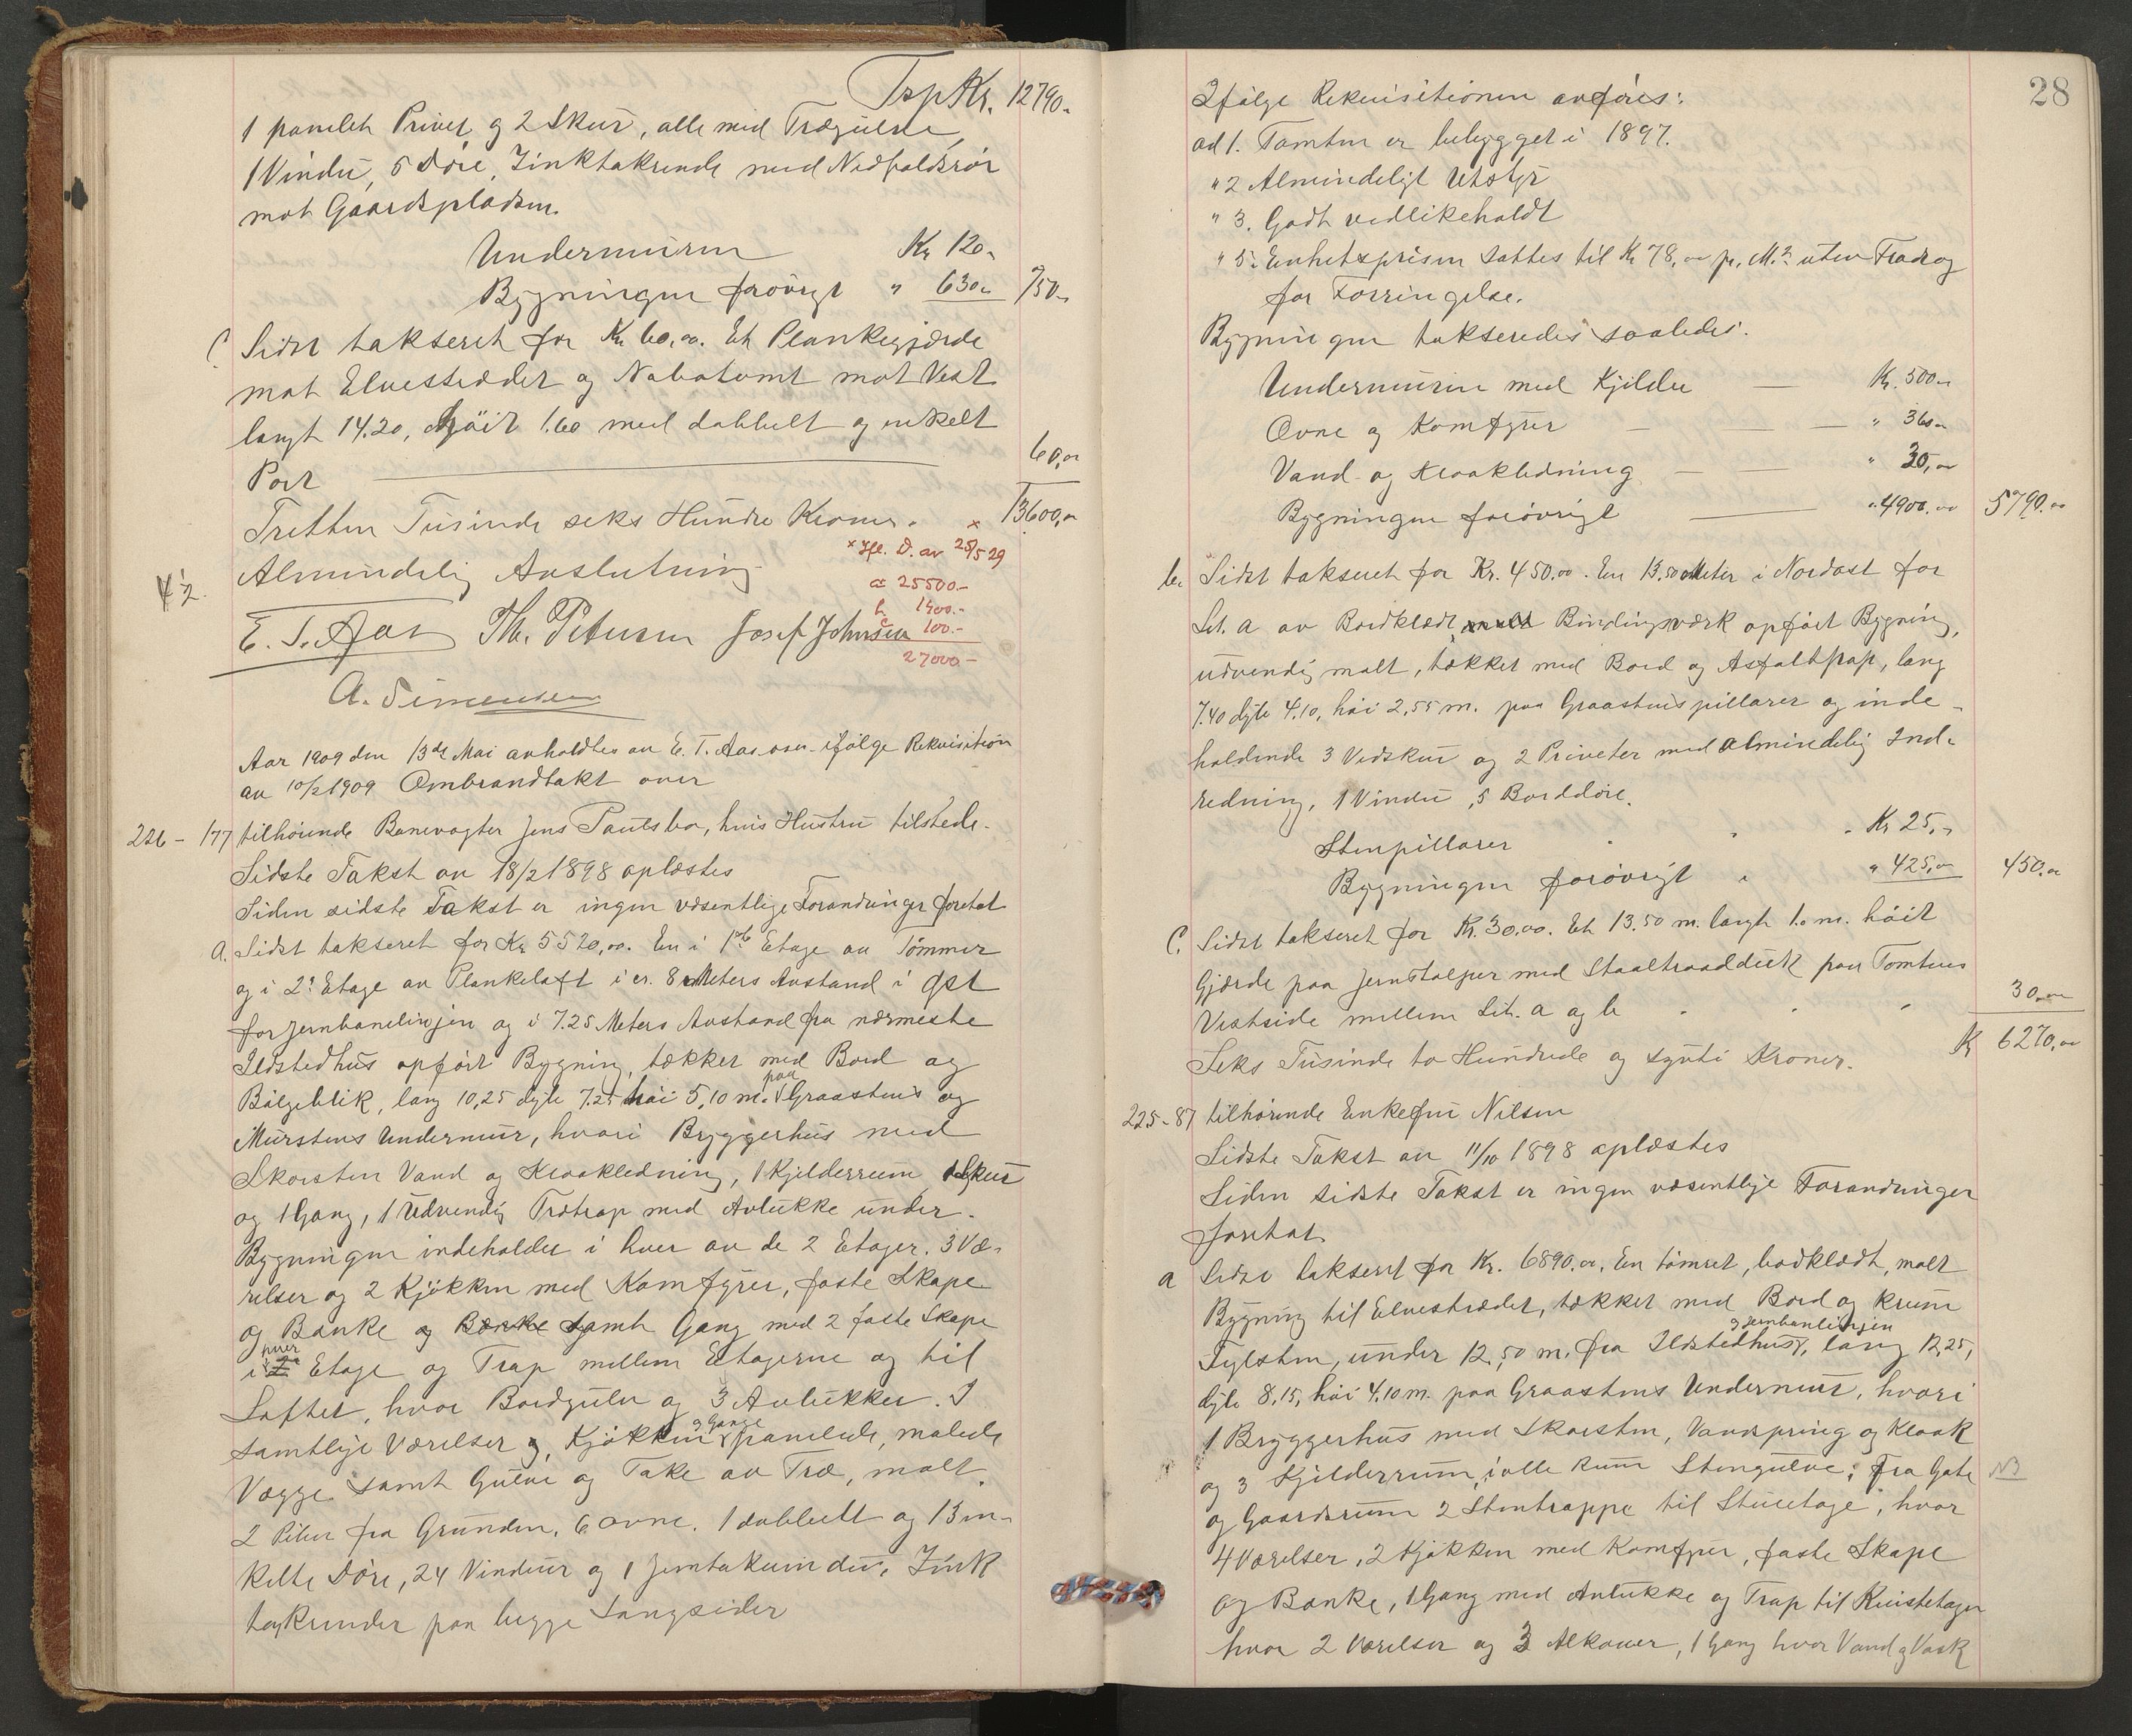 Trsp Kr. 12790.-
1 panelet Privet og 2 Skur, alle med Trægulve,
1 Vindu, 5 Döre, Zinktakrende med Nedfaldsrör
mot Gaardspladsen.
Undermuren Kr 120.-
Bygningen forövrigt " 630.- 750.-
C Sidst takseret for Kr. 60,00. Et Plankegjærde
mot Elvestrædet og Nabotomt mot Vest
langt 14.20, höit 1.60 med dobbelt og enkelt
Port 60,00
Tretten Tusinde seks Hundre Kroner. × 13600,00
× Ifl. D. av 25/5 29
Almindelig Avslutning
a 25500.-
4 1/2.
b. 1400.-
E. T. Aas Th. Petersen Josef Johnsen
c 100.-
27000.-
A. Simensen
Aar 1909 den 13de Mai avholdtes av E. T. Aas osv. ifölge Rekvisition
av 10/2 1909 Ombrandtakst over
226 - 177 tilhörende Banevogter Jens Pautsbo, hvis Hustru tilstede.
Sidste Takst av 18/2 1898 oplæstes
Siden sidste Takst er ingen væsentlige Forandringer foretat
a. Sidst takseret for Kr 5520,00. En i 1ste Etage av Tömmer
og i 2den Etage av Plankeloft i cr. 8 Meters Avstand i Öst
for Jernbanelinjen og i 7.25 Meters Avstand fra nærmeste
Ildstedhus opfört Bygning, tækket med Bord og
Bölgeblik, lang 10,25 dyb 7.25 höi 5,10 m. paa Graastens og
Murstens Undermur, hvori Bryggerhus med
Skorsten Vand og Kloakledning, 1 Kjelderrum 1 Skur
og 1 Gang, 1 Udvendig Trætrap med Avlukke under.
Bygningen indeholder i hver av de 2 Etager. 3 Væ-
relser og 2 Kjökken med Komfyrer, faste Skape
og Bænke og Bænke samt Gang med 2 faste Skape
i hver Etage og Trap mellem Etagerne og til
Loftet, hvor Bordgulv og 3 Avlukker. I
samtlige Værelser og Kjökken og Gange panelede, malede
Vægge samt Gulve og Take av Træ, malt.
2 Piber fra Grunden, 6 ovne. 1 dobbelt og 13 en-
kelte Döre, 24 Vinduer og 1 Jerntakvindu. Zink
takrender paa begge Langsider
28
Ifölge Rekvisitionen anföres:
ad 1. Tomten er bebygget i 1897.
" 2 Almindeligt Utstyr
" 3. Godt vedlikeholdt
" 5. Enhetsprisen sattes til Kr 78,00 pr. M.2 uten Fradrag
for Forringelse.
Bygningen takseredes saaledes.
Undermuren med Kjelder — Kr. 500.-
Ovne og Komfyrer — " 360.-
Vand- og Kloakledning — " 30,00
Bygningen forövrigt — " 4900.00 5790.00
b. Sidst takseret for Kr. 450.00. En 13.50 Meter i Nordost for
Lit. a av Bordklædt Bindingsværk opfört Bygning,
udvendig malt, tækket med Bord og Asfaltpap, lang
7.40 dyb 4.10, höi 2,55 m. paa Graastenspillarer og inde-
holdende 3 Vedskur og 2 Priveter med almindelig Ind-
redning, 1 Vindu, 5 Borddöre.
Stenpillarer Kr 25.-
Bygningen forövrigt " 425,00 450.00
C. Sidst takseret for Kr. 30.00. Et 13.50 m. langt 1.0 m. höit
Gjærde paa Jernstolper med Staaltraadduk paa Tomtens
Vestside mellem Lit. a og b 30.00
Kr 6270,00
Seks Tusinde to Hundrede og sytti Kroner.
225-87 tilhörende Enkefru Nilsen
Sidste Takst av 11/10 1898 oplæstes
Siden sidste Takst er ingen væsentlige Forandringer
foretat.
a Sidst takseret for Kr. 6890.00. En tömret, bordklædt, malt
Bygning til Elvestrædet, tækket med Bord og krum
Teglsten, under 12,50 m. fra Ildstedhus og Jernbanelinjen, lang 12,25,
dyb 8.15, höi 4.10 m. paa Graastens Undermur, hvori
1 Bryggerhus med Skorsten, Vandspring og Kloak
og 3 Kjelderrum, i alle Rum Stengulve; fra Gate NB
og Gaardsrum 2 Stentrappe til Stueetage, hvor
4 Værelser, 2 Kjökken med Komfyrer, faste Skape
og Bænke, 1 Gang med Avlukke og Trap til Kvistetagen
hvor 2 Værelser og 3 Alkover, 1 Gang hvor Vand og Vask